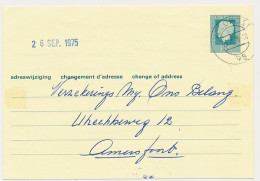 2 6 SEP. 1975
adreswijziging changement d'adresse change of address
Verzekerings My. Ons Belang.
Utrechtseweg 12
Amersfoort.